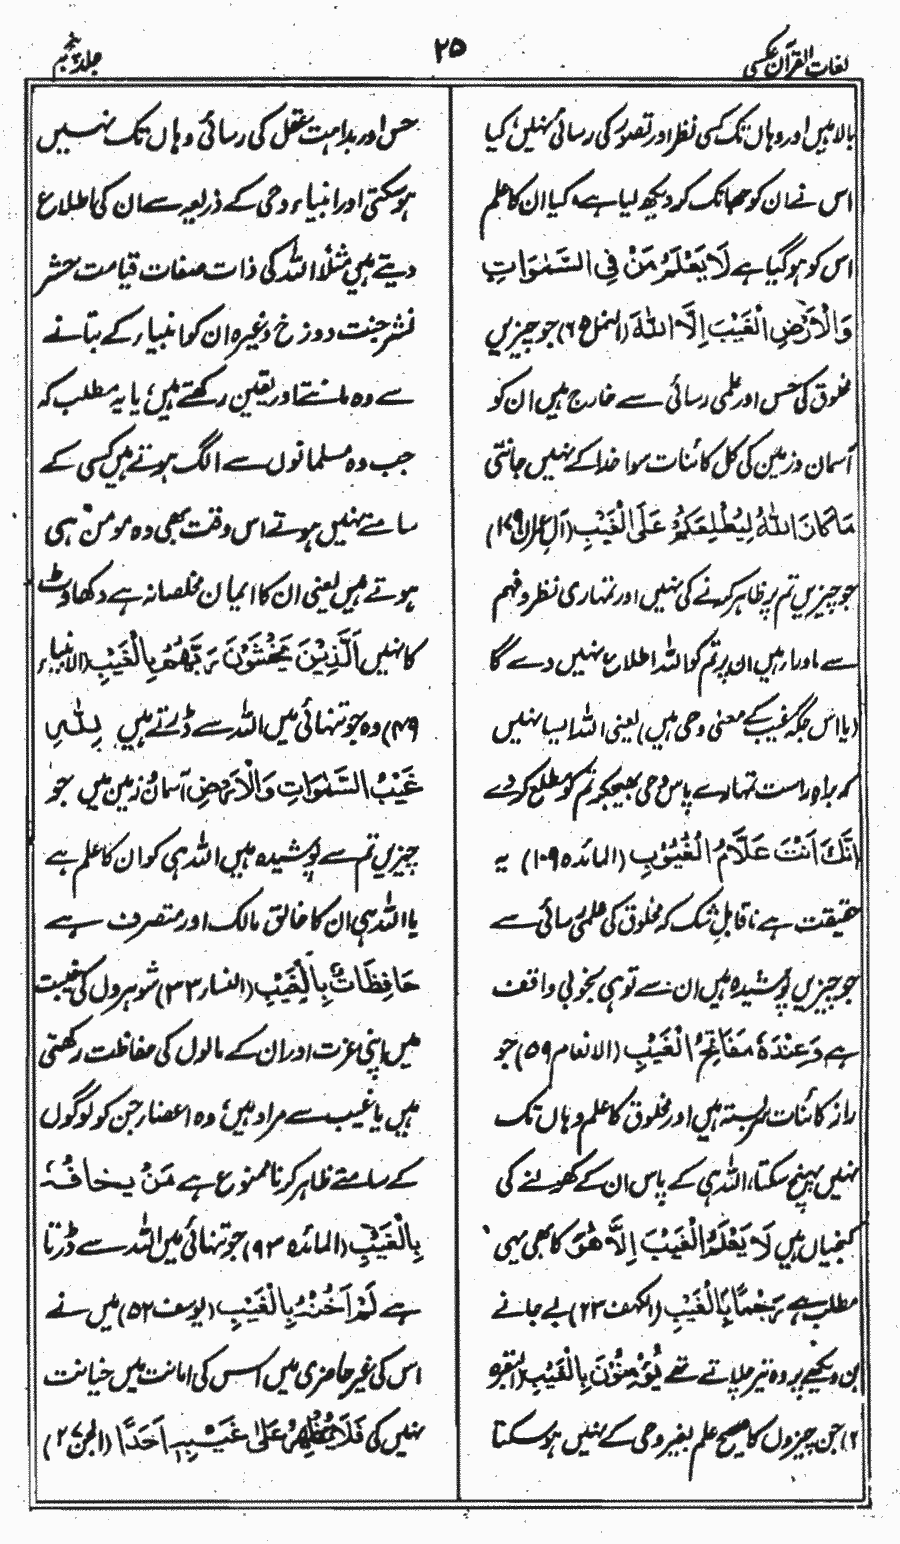 لغات القرآن عکسی
۲۵
جلد پنجم
بالا ہیں اور وہاں تک کسی نظر اور تصور کی رسائی نہیں، کیا
اس نے ان کو جھانک کر دیکھ لیا ہے، کیا ان کا علم
اس کو ہو گیا ہے لَا یَعْلَمُ مَنْ فِی السَّمٰوَاتِ
وَالْاَرْضِ الْغَیْبَ اِلَّا اللّٰہَ (النمل ع ۶) جو چیزیں
مخلوق کی حس اور علمی رسائی سے خارج ہیں ان کو
آسمان و زمین کی کل کائنات سوا خدا کے نہیں جانتی
مَا کَانَ اللّٰہُ لِیُطْلِعَکُمْ عَلَی الْغَیْبِ (آل عمران ۱۷۹)
جو چیزیں تم پر ظاہر کرنے کی نہیں اور تمہاری نظر و فہم
سے ماوراء ہیں ان پر تم کو اللہ اطلاع نہیں دے گا
(یا اس جگہ غیب کے معنی وحی ہیں) یعنی اللہ ایسا نہیں
کہ براہ راست تمہارے پاس وحی بھیجکر تم کو مطلع کر دے
اِنَّکَ اَنْتَ عَلَّامُ الْغُیُوْبِ (المائدہ ۱۰۹) یہ
حقیقت ہے ناقابلِ شک کہ مخلوق کی علمی رسائی سے
جو چیزیں پوشیدہ ہیں ان سے تو ہی بخوبی واقف
ہے وَعِنْدَہٗ مَفَاتِحُ الْغَیْبِ (الانعام ۵۹) جو
راز کائنات سربستہ ہیں اور مخلوق کا علم وہاں تک
نہیں پہنچ سکتا، اللہ ہی کے پاس ان کے کھولنے کی
کنجیاں ہیں لَا یَعْلَمُ الْغَیْبَ اِلَّا ھُوَ کا بھی یہی
مطلب ہے رَجْمًا بِالْغَیْبِ (الکہف ۲۲) بے جانے
بن دیکھے پر وہ تیر چلاتے تھے یُؤْمِنُوْنَ بِالْغَیْبِ (البقرہ
۲) جن چیزوں کا صحیح علم بغیر وحی کے نہیں ہو سکتا
حس اور بداہت عقل کی رسائی وہاں تک نہیں
ہو سکتی اور انبیاء وحی کے ذریعہ سے ان کی اطلاع
دیتے ہیں مثلاً اللہ کی ذات صفات قیامت حشر
نشر جنت دوزخ وغیرہ ان کو انبیاء کے بتانے
سے وہ مانتے اور یقین رکھتے ہیں، یا یہ مطلب کہ
جب وہ مسلمانوں سے الگ ہوتے ہیں کسی کے
سامنے نہیں ہوتے اس وقت بھی وہ مومن ہی
ہوتے ہیں یعنی ان کا ایمان مخلصانہ ہے دکھاوٹ
کا نہیں اَلَّذِیْنَ یَخْشَوْنَ رَبَّھُمْ بِالْغَیْبِ (الانبیاء
۴۹) وہ جو تنہائی میں اللہ سے ڈرتے ہیں لِلّٰہِ
غَیْبُ السَّمٰوَاتِ وَالْاَرْضِ آسمان و زمین میں جو
چیزیں تم سے پوشیدہ ہیں اللہ ہی کو ان کا علم ہے
یا اللہ ہی ان کا خالق مالک اور متصرف ہے
حَافِظَاتٌ بِالْغَیْبِ (النساء ۳۴) شوہروں کی غیبت
میں اپنی عزت اور ان کے مالوں کی حفاظت رکھتی
ہیں یا غیب سے مراد ہیں، وہ اعضاء جن کو لوگوں
کے سامنے ظاہر کرنا ممنوع ہے مَنْ یَّخَافُہٗ
بِالْغَیْبِ (المائدہ ۹۴) جو تنہائی میں اللہ سے ڈرتا
ہے لَمْ اَخُنْہُ بِالْغَیْبِ (یوسف ۵۲) میں نے
اس کی غیر حاضری میں اس کی امانت میں خیانت
نہیں کی فَلَا یُظْھِرُ عَلٰی غَیْبِہٖ اَحَدًا (الجن ۲۷)